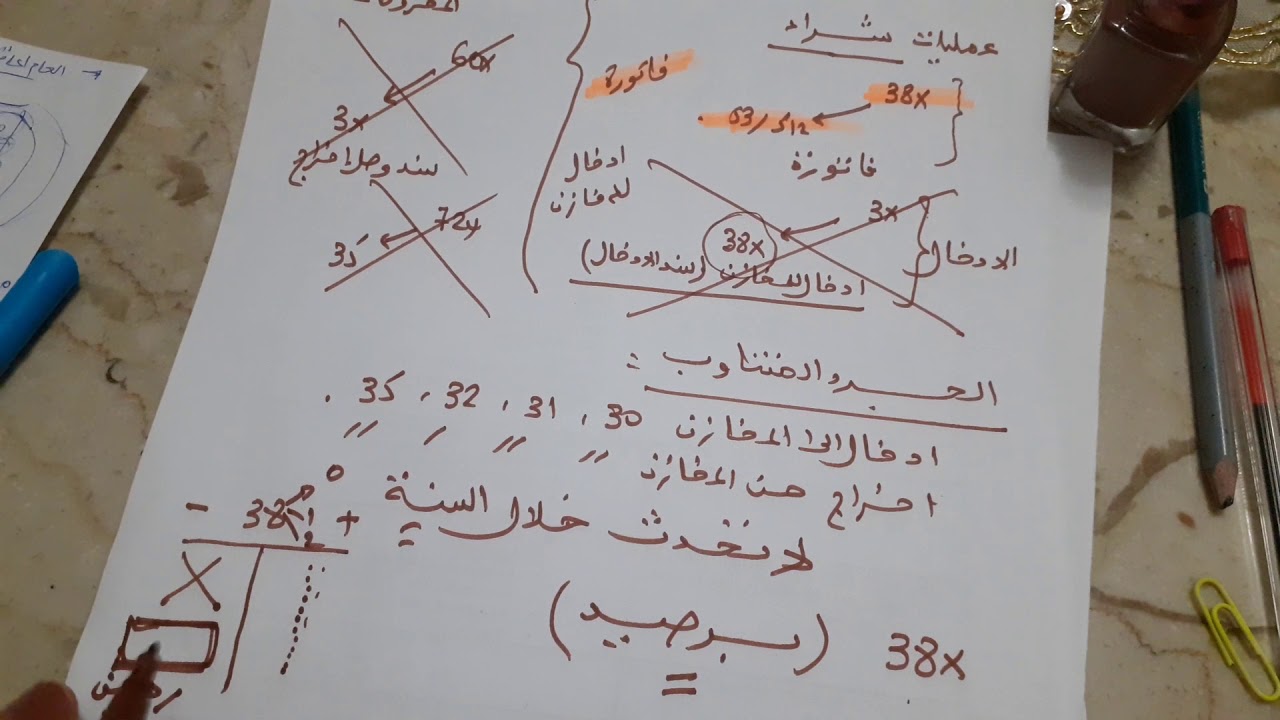 عمليات شراء
38x
53/512
فاتورة
3x
38x
الادخال
ادخال للمخازن (سند الادخال)
فاتورة
ادخال
للمخازن
60x
3x
سند وصل اخراج
72x
35
الجرد المتناوب :
ادخال الى المخازن 30 ، 31 ، 32 ، 35 .
اخراج من المخازن " " " "
لا تحدث خلال السنة
38x (برصيد)
- 38 +